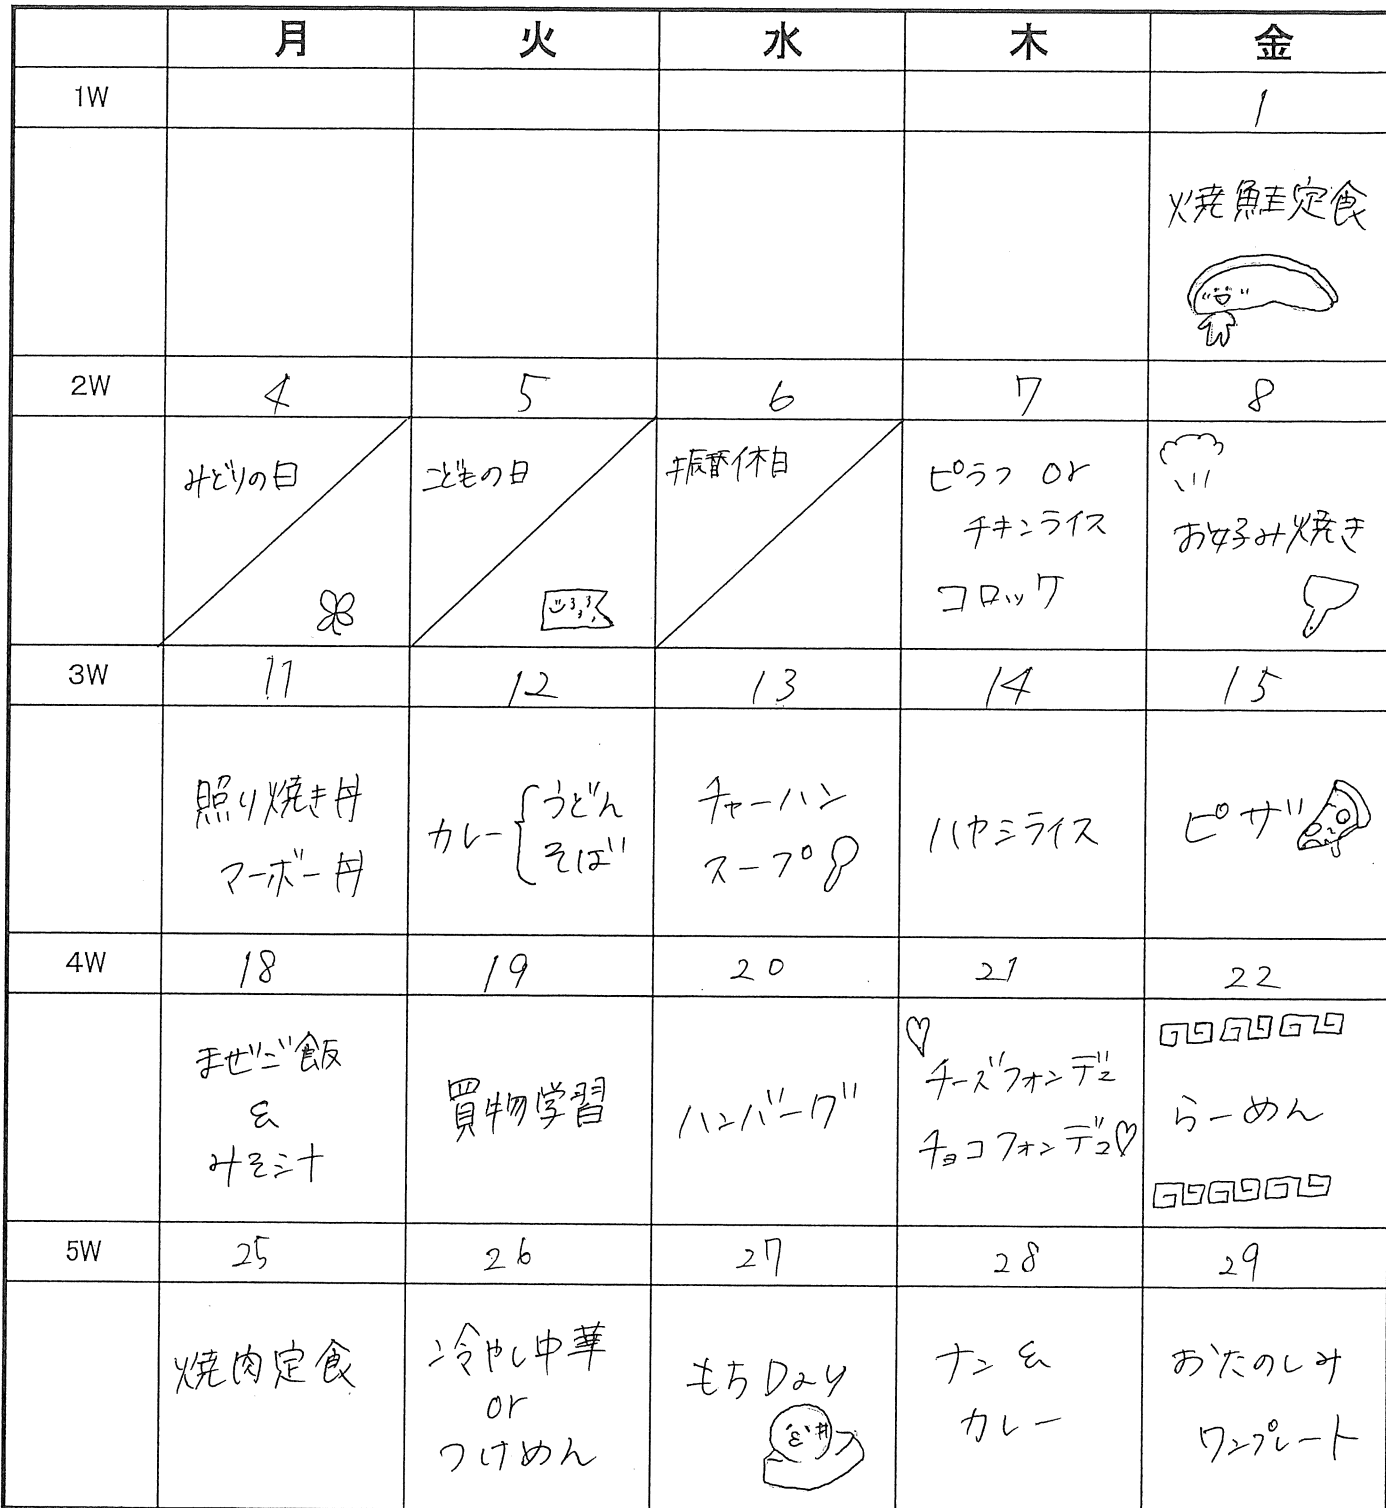 月 火 水 木 金
1W 1
焼鮭定食
2W 4 5 6 7 8
みどりの日
こどもの日
振替休日
ピラフ or
チキンライス
コロッケ
お好み焼き
3W 11 12 13 14 15
照り焼き丼
マーボー丼
カレー
うどん
そば
チャーハン
スープ
ハヤシライス
ピザ
4W 18 19 20 21 22
まぜご飯
&
みそ汁
買物学習
ハンバーグ
チーズフォンデュ
チョコフォンデュ
らーめん
5W 25 26 27 28 29
焼肉定食
冷やし中華
or
つけめん
もちDay
ナン &
カレー
おたのしみ
ワンプレート